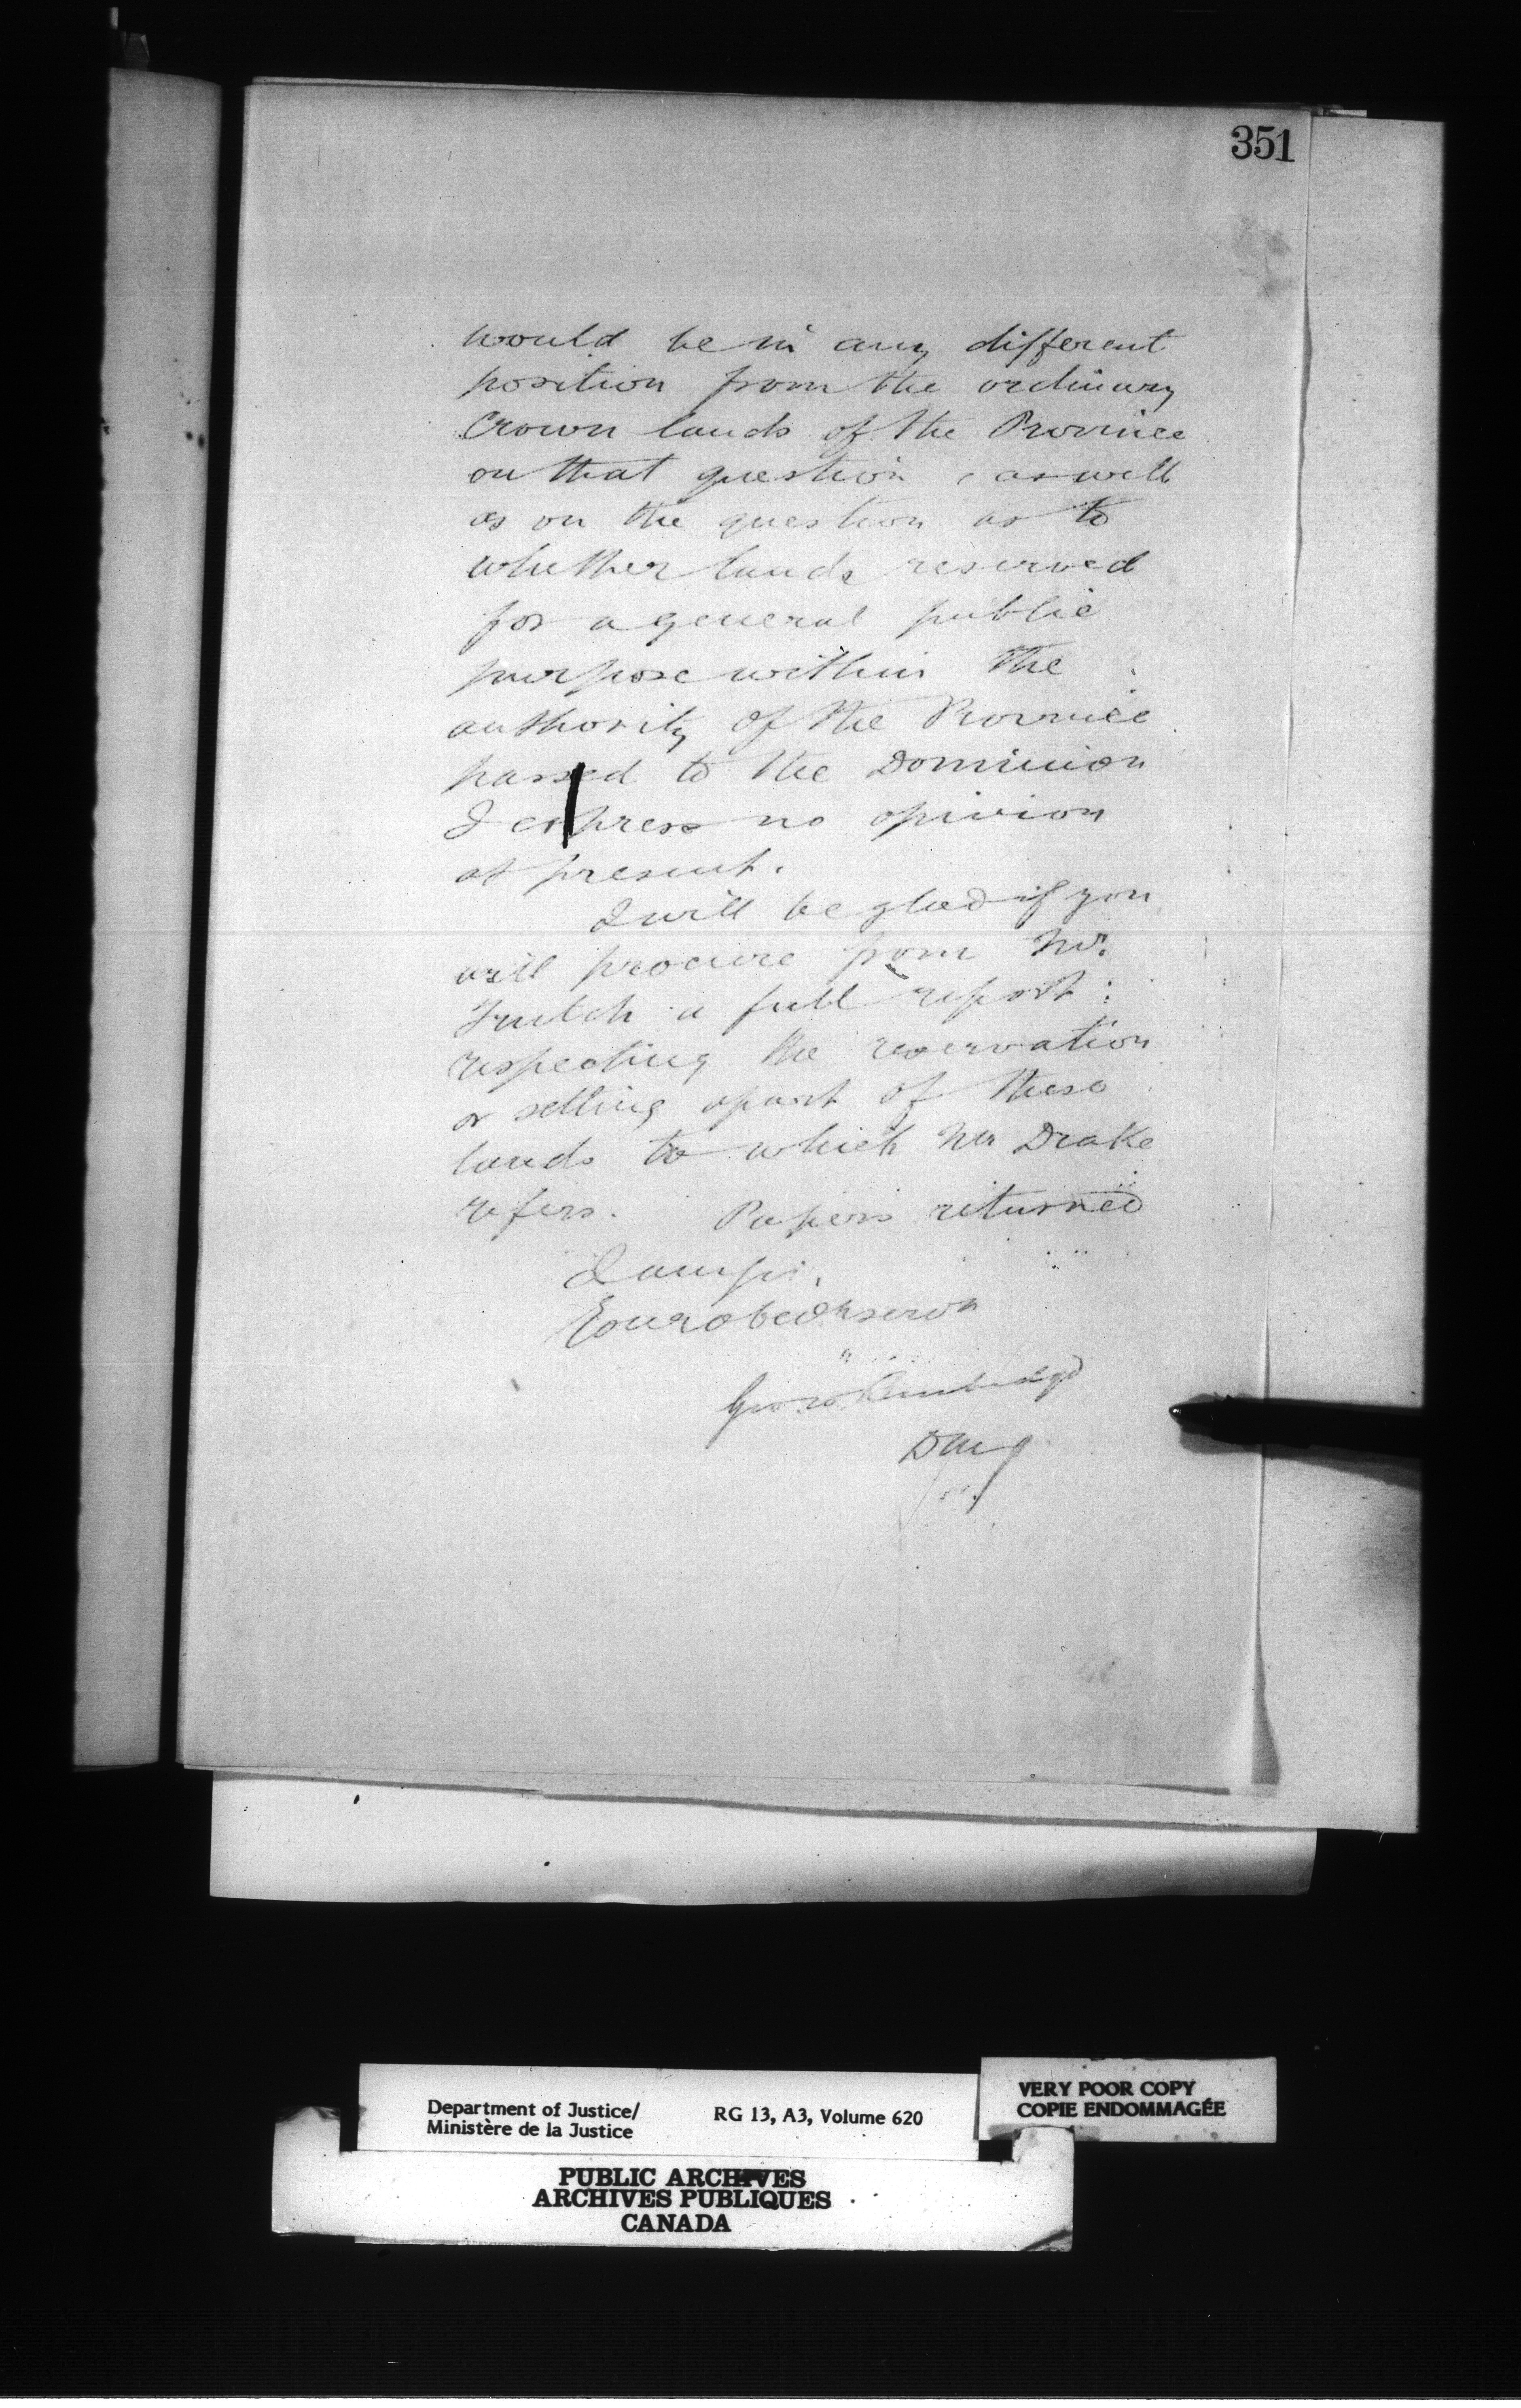 351
would be in any different
position from the ordinary
Crown lands of the Province
on that question, as well
as on the question as to
whether lands reserved
for a general public
purpose within the
authority of the Province
passed to the Dominion
I express no opinion
at present.
I will be glad if you
will procure from Mr.
Trutch a full report
respecting the reservation
or setting apart of these
lands to which Mr Drake
refers. Papers returned
I am sir,
Your obedt servt
Geo. W. Burbidge
DMJ
Department of Justice/
Ministère de la Justice
RG 13, A3, Volume 620
VERY POOR COPY
COPIE ENDOMMAGÉE
PUBLIC ARCHIVES
ARCHIVES PUBLIQUES
CANADA